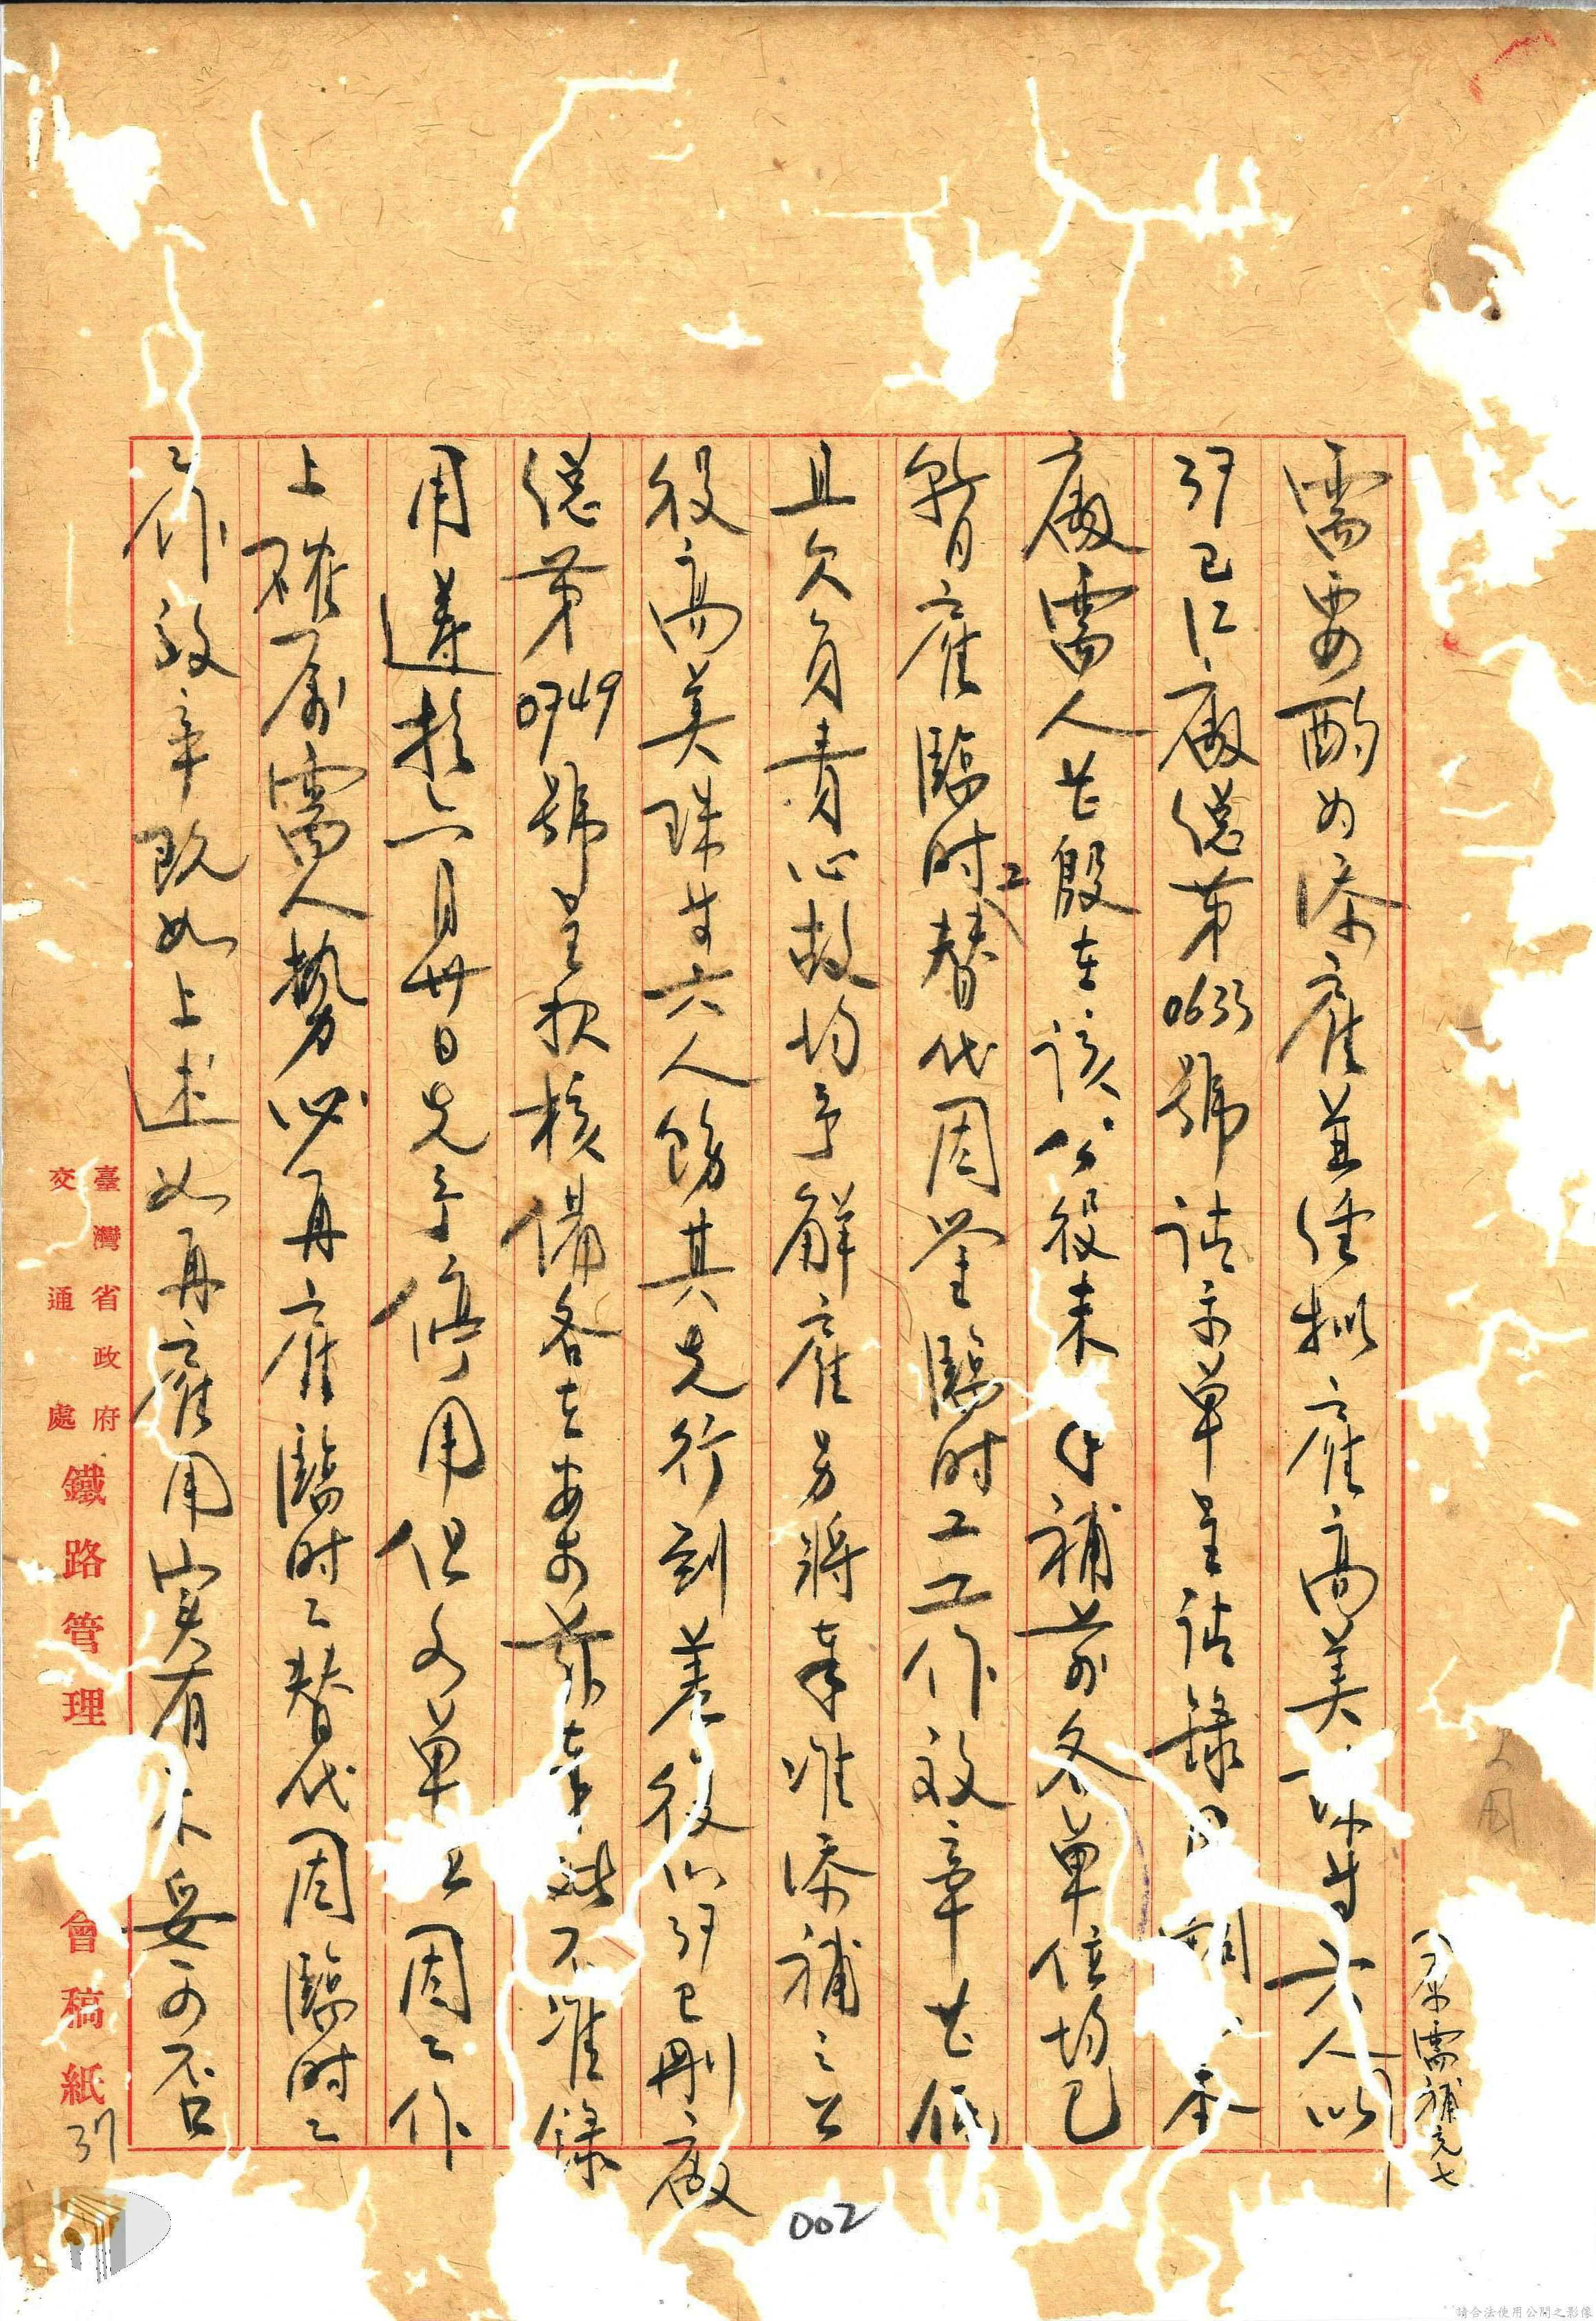 需要酌力添雇並經擬雇高美珠等六人以
(原需補充七
36已仁廠總第0633號請示單呈請錄用
廠需人尤殷在該公役未補前各單位均已
暫雇臨時工替代因鑒臨時工工作效率尤低
且欠負責心故均予解雇另將奉准添補之公
役高美珠等六人飭其先行到差後以36巳刪廠
總第0749號呈报核備各在案
不准錄
用遵於六月卅日先予停用但各單
因工作
上確屬需人勢必再雇臨時工替代因臨時工
工作效率既如上述如再雇用實有未妥可否
臺灣省政府
交通處
鐵路管理
會稿紙
37
002
請合法使用公開之影像